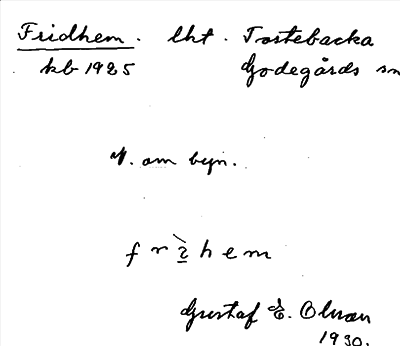 Fridhem. lht. Tostebacka
kb 1925 Godegårds sn
N. om byn.
frìhem
Gustaf E. Olson
1930.